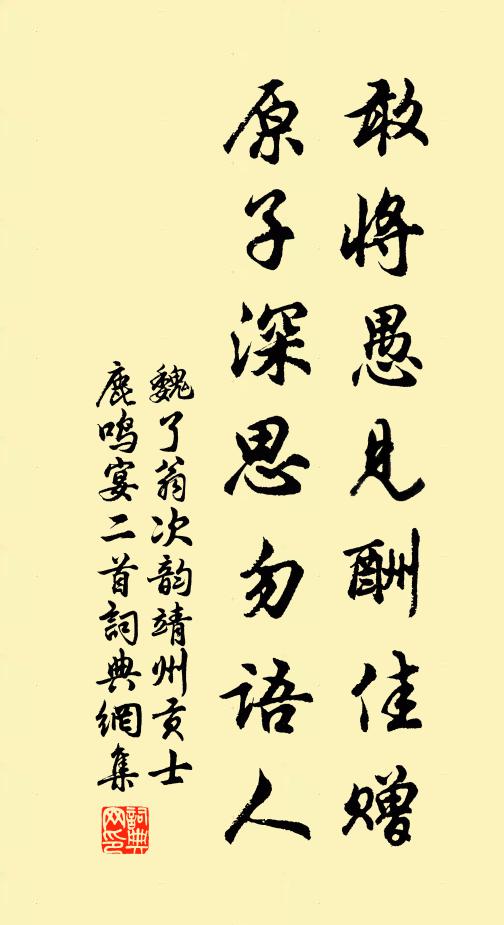 敢将愚见酬佳赠
原子深思勿语人
魏了翁次韵靖州贡士
鹿鸣宴二首詞典網集
詞典
网印